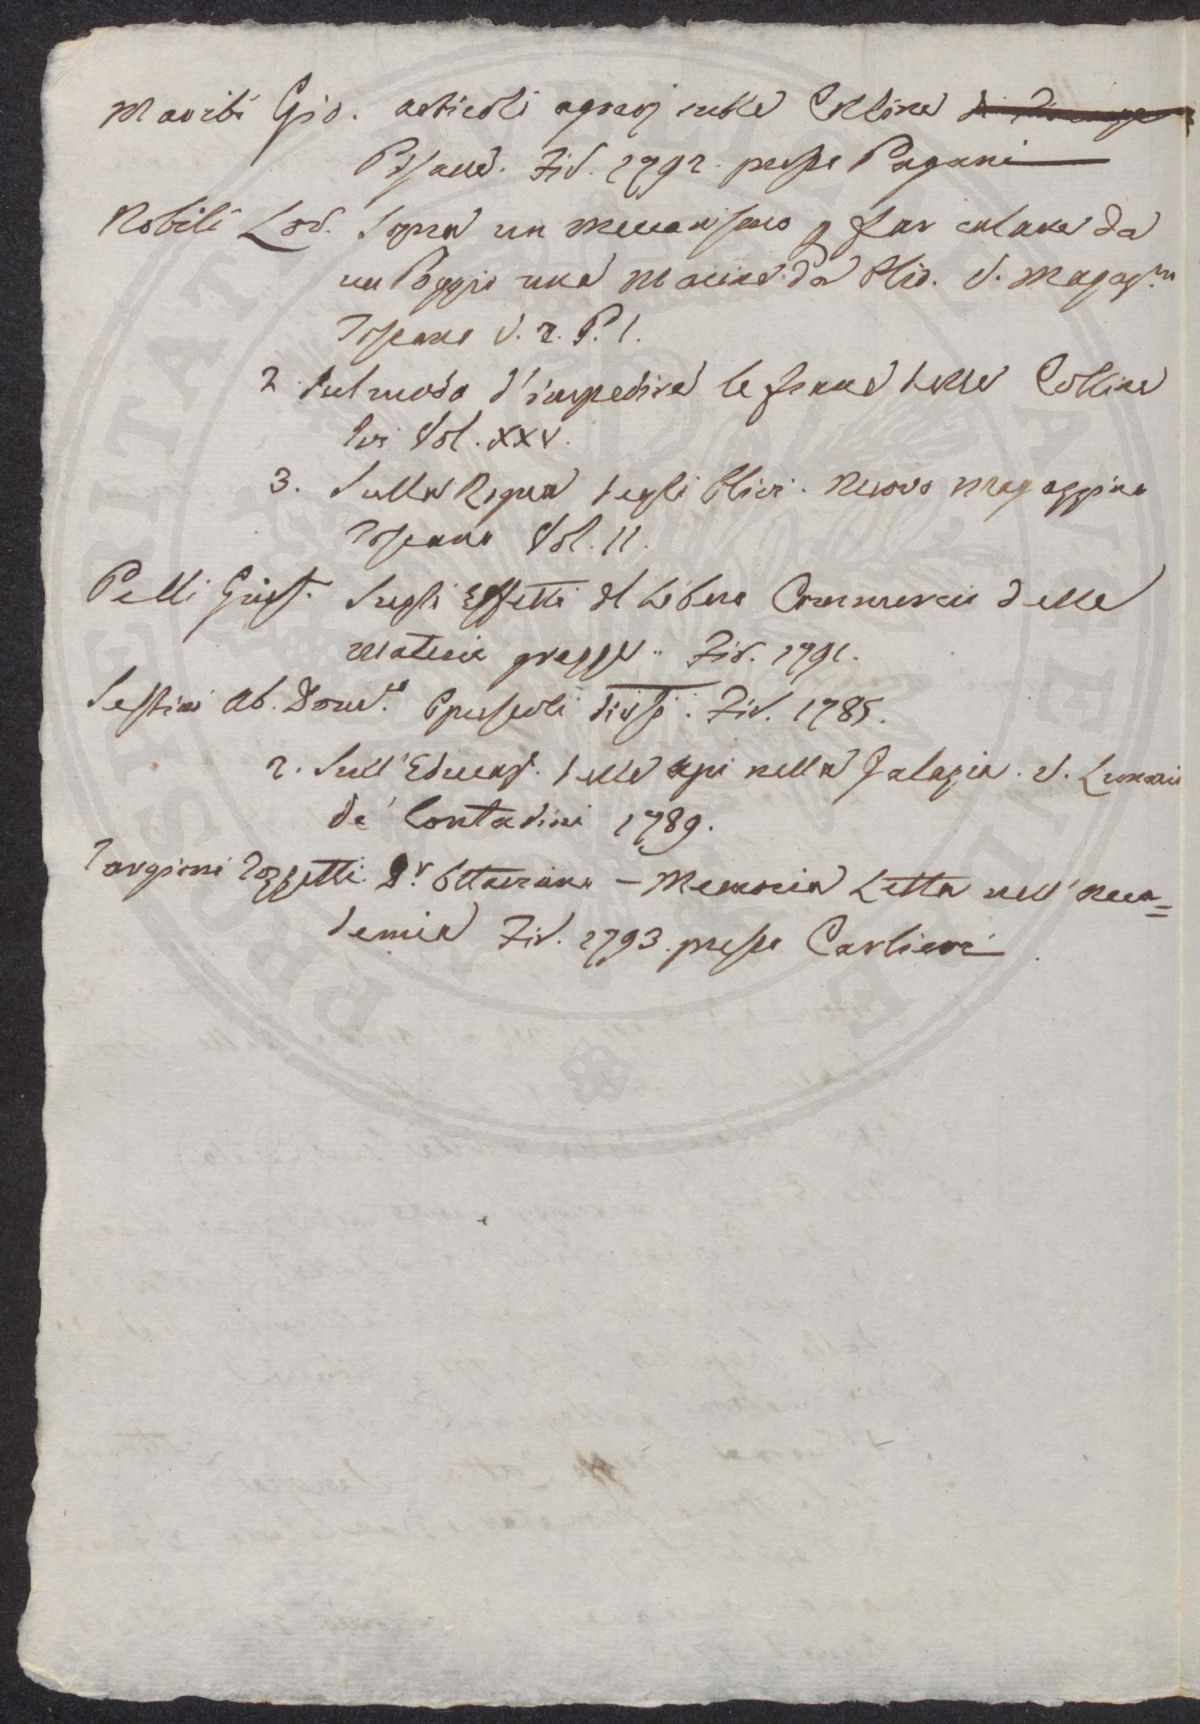 Mariti Gio. articoli agrarj sulle Colline
Pisane. Fir. 1792. presso Pagani
Nobili Lod. Sopra un Meccanismo p far calare da
un Poggio una Macine da Olio. V. Magazno
Toscano V. 2. P. 1.
2. Sul modo d'impedire le frane delle Colline
Ivi Vol. XXV.
3. Sulla Rogna degli Olivi. Nuovo Magazzino
Toscano Vol. II.
Pelli Gius. Sugli Effetti dl Libero Commercio delle
materie gregge. Fir. 1791.
Sestini Ab. Domco Opuscoli divsi. Fir. 1785.
2. Sull'Educaz. delle api nella Galazia. V. Lunario
de' Contadini 1789.
Targioni Tozzetti Dr. Ottaviano – Memoria Letta nell'Acca=
demia Fir. 1793. presso Carlieri